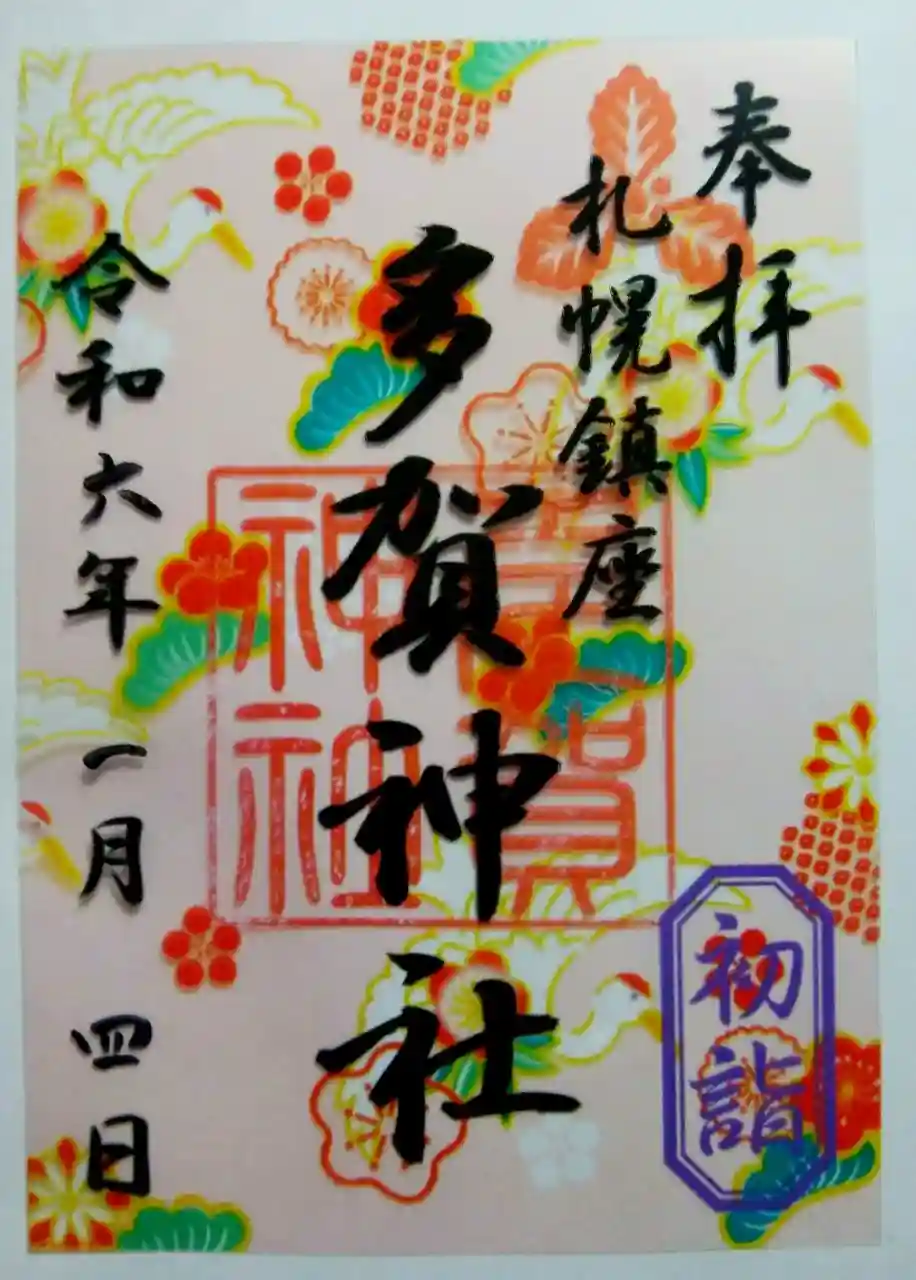 奉拝
札幌鎮座
多賀神社
多賀
神社
令和六年一月四日
初詣